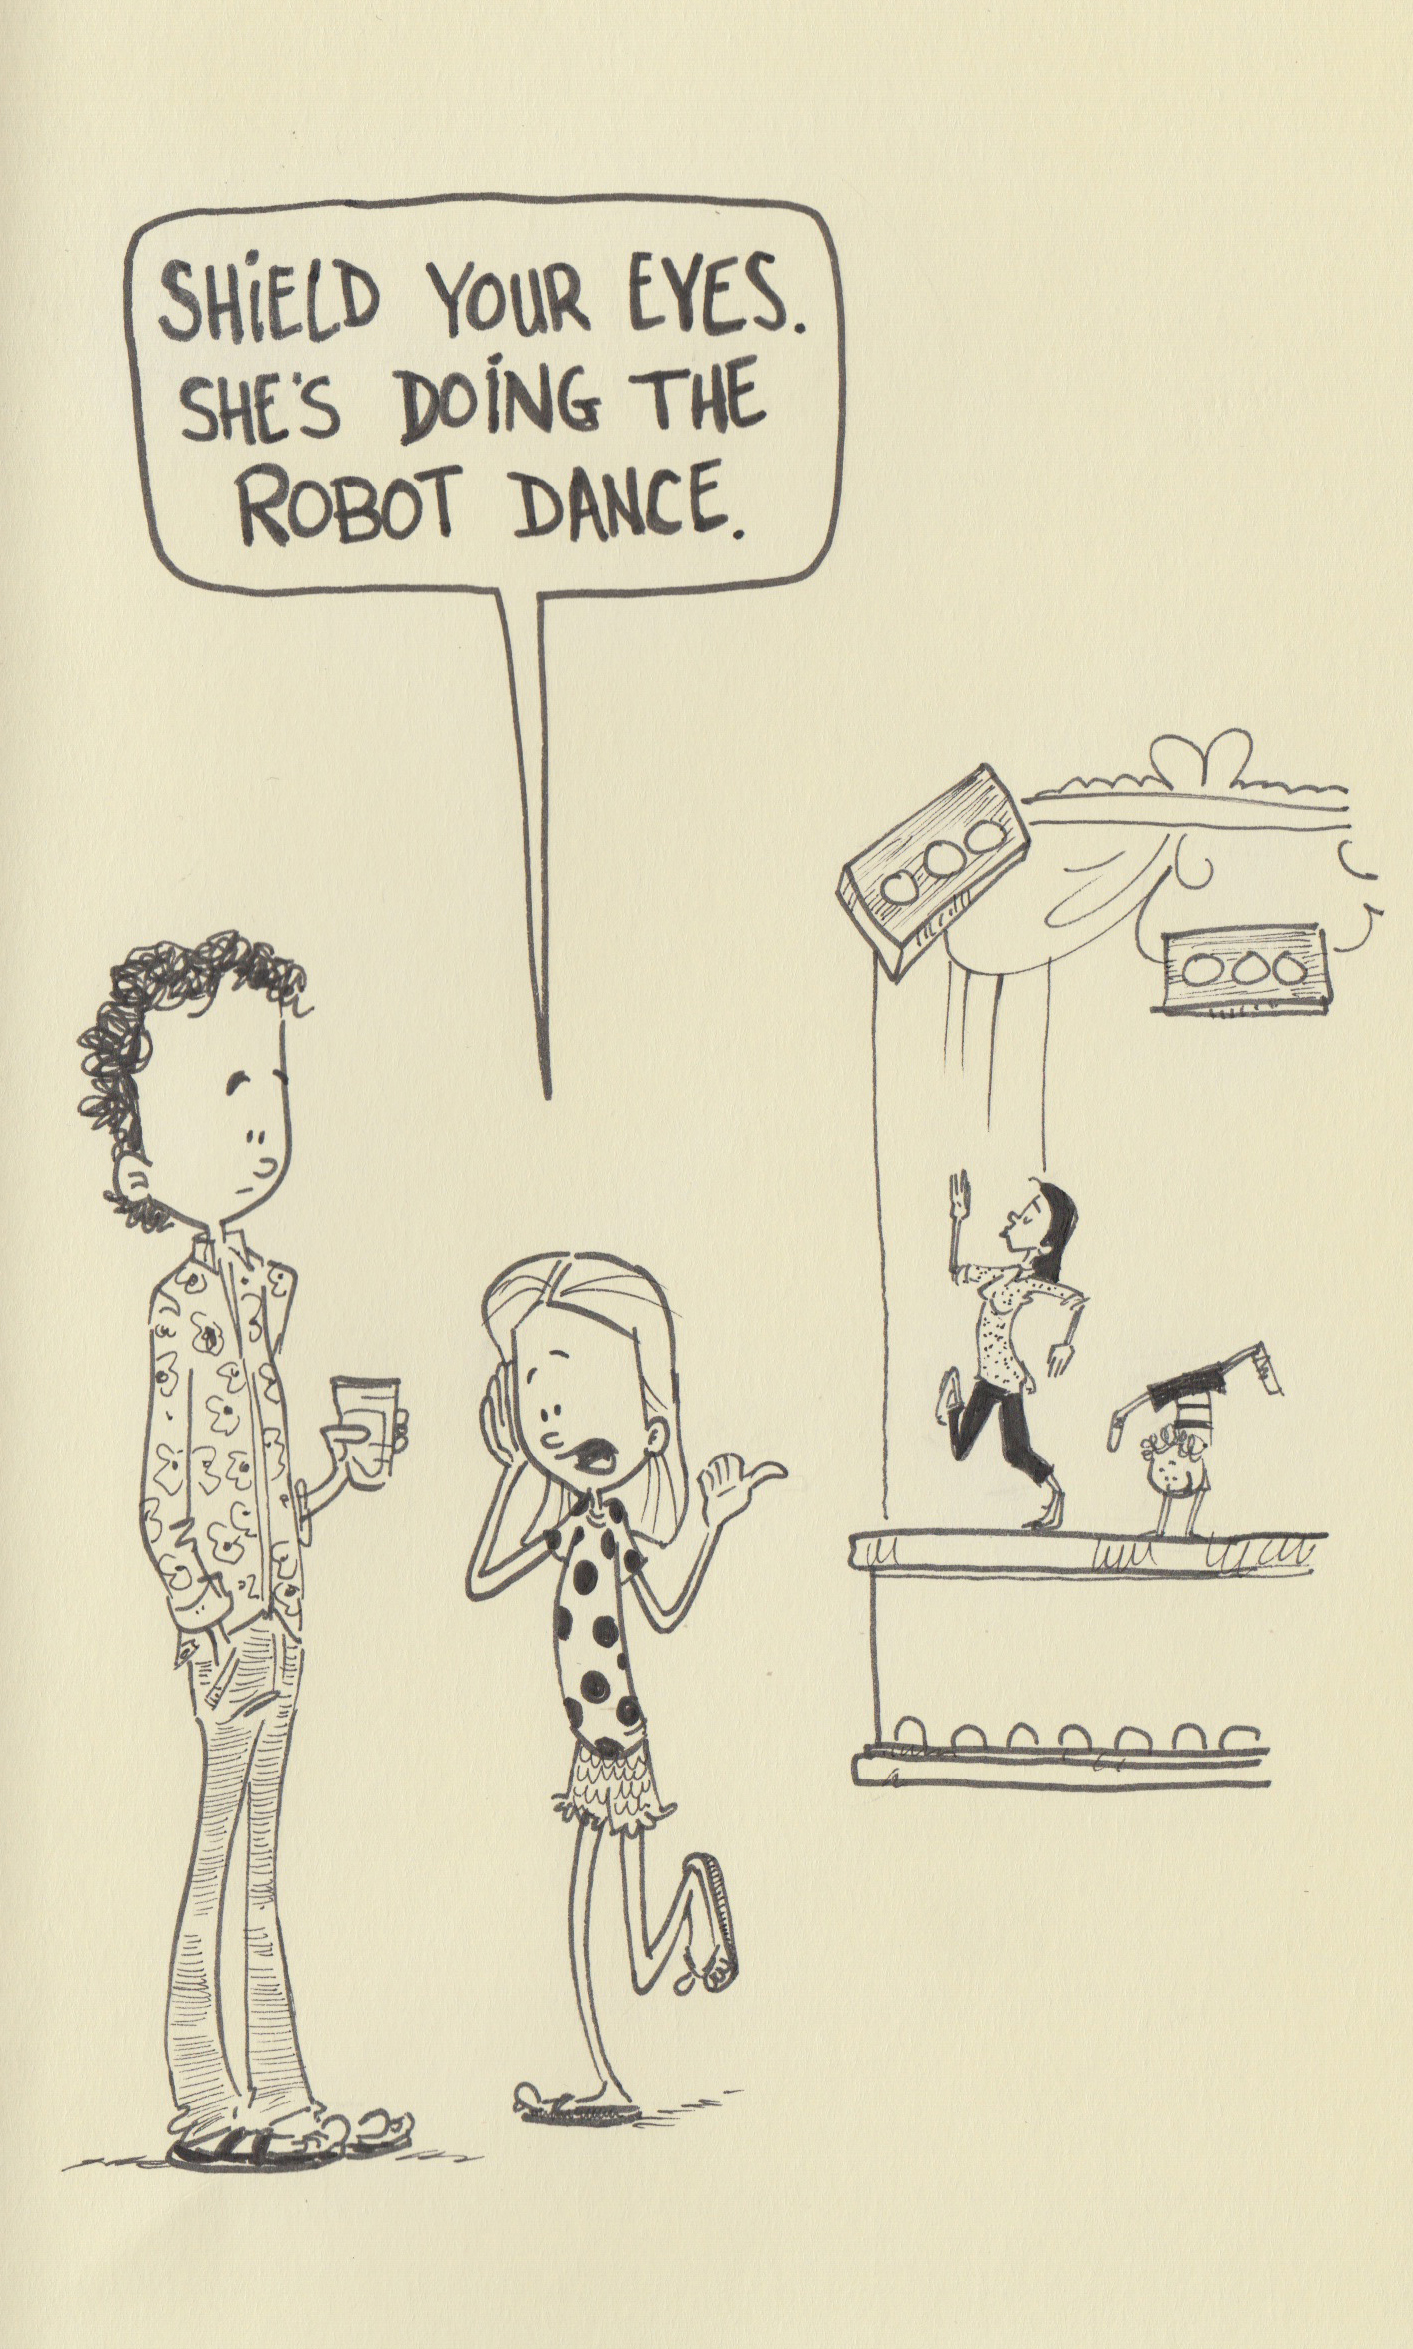 SHiELD YOUR EYES.
SHE'S DOiNG THE
ROBOT DANCE.